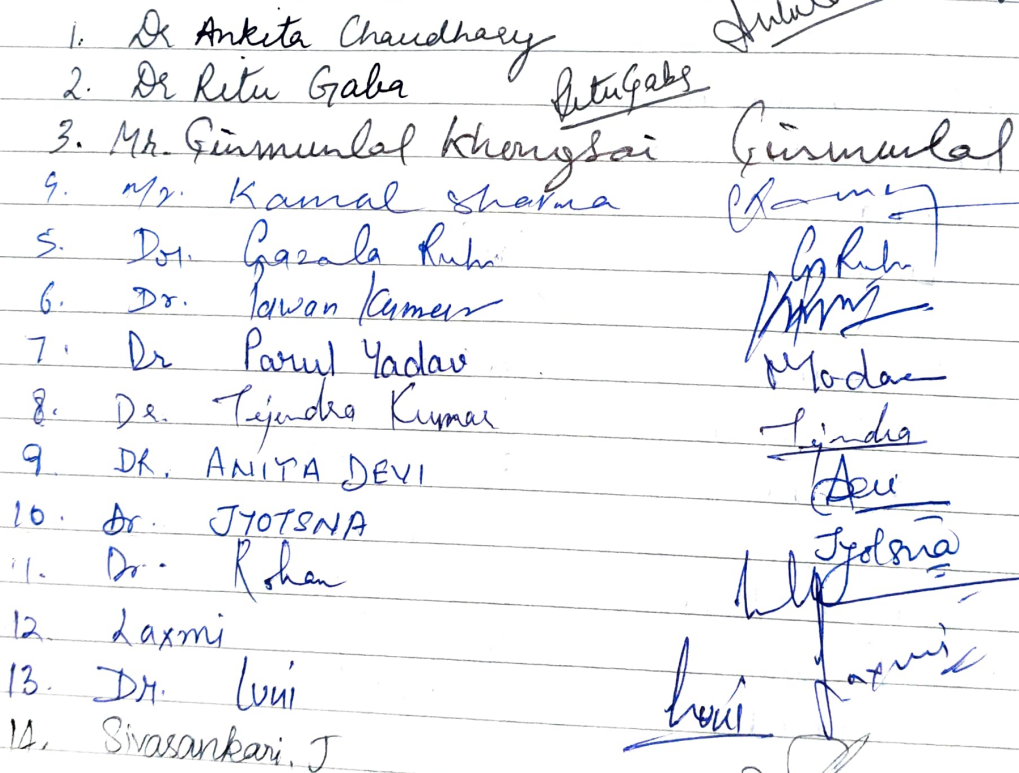 1. Dr Ankita Chaudhary
2. Dr Ritu Gaba Ritu Gaba
3. Mr. Ginmunlal Khongsai Ginmunlal
4. Mr. Kamal Sharma
5. Dr. Gazala Ruhi G Ruhi
6. Dr. Pawan Kumar
7. Dr Parul Yadav Yadav
8. Dr. Tejendra Kumar Tejndra
9. DR. ANITA DEVI Devi
10. Dr. JYOTSNA Jyotsna
11. Dr. Rohan
12. Laxmi Laxmi
13. Dr. Luni Luni
14. Sivasankari. J